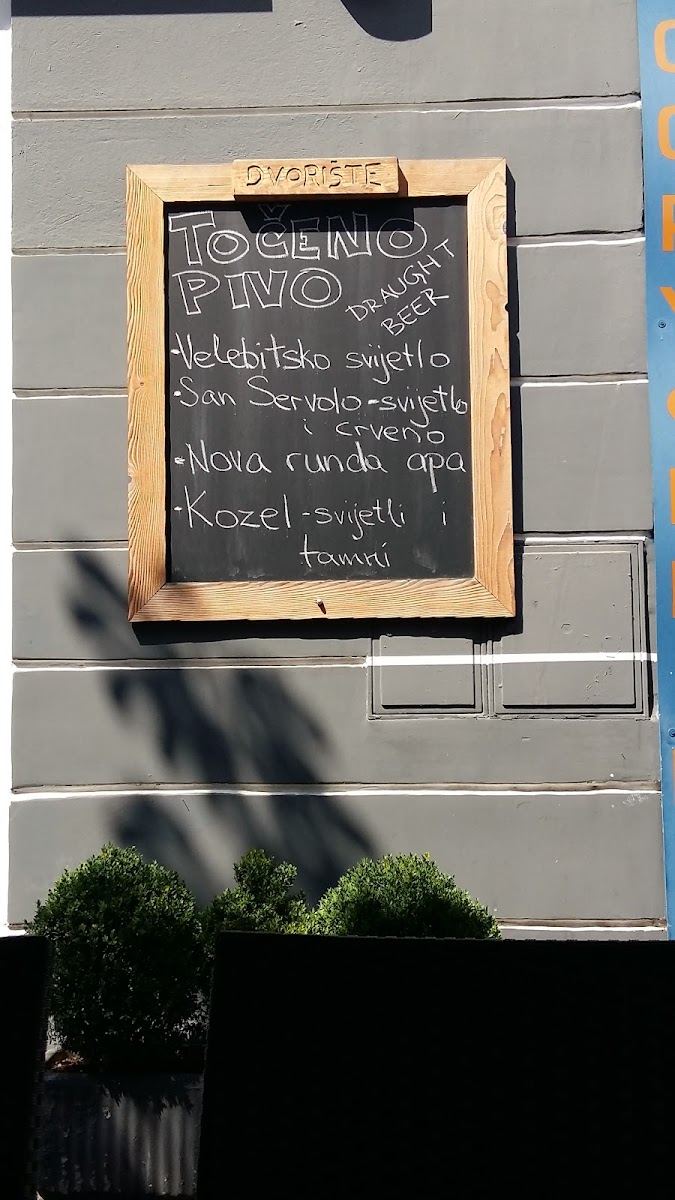 DVORIŠTE
TOČENO
PIVO
DRAUGHT
BEER
·Velebitsko svijetlo
·San Servolo-svijetlo
i crveno
·Nova runda apa
·Kozel-svijetli i
tamni